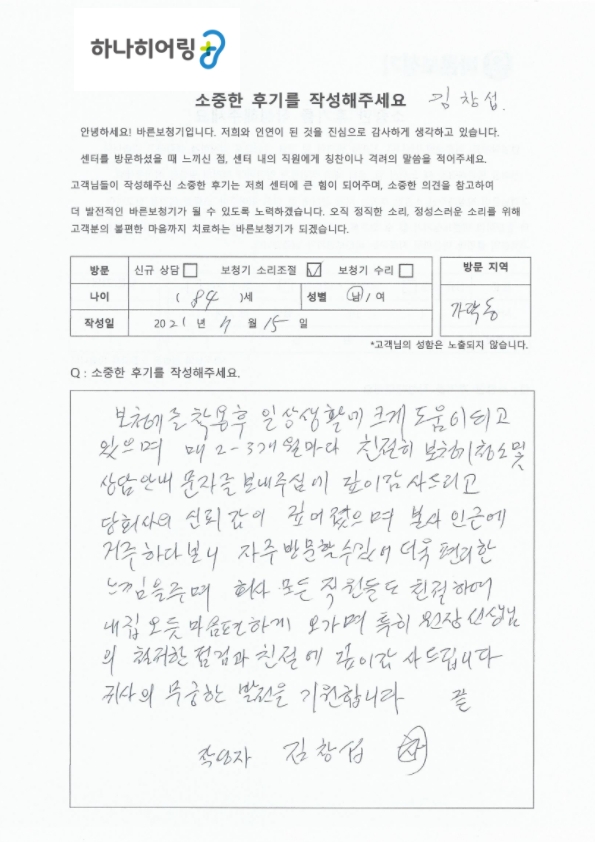 하나히어링
소중한 후기를 작성해주세요 김창섭.
안녕하세요! 바른보청기입니다. 저희와 인연이 된 것을 진심으로 감사하게 생각하고 있습니다.
센터를 방문하셨을 때 느끼신 점, 센터 내의 직원에게 칭찬이나 격려의 말씀을 적어주세요.
고객님들이 작성해주신 소중한 후기는 저희 센터에 큰 힘이 되어주며, 소중한 의견을 참고하여
더 발전적인 바른보청기가 될 수 있도록 노력하겠습니다. 오직 정직한 소리, 정성스러운 소리를 위해
고객분의 불편한 마음까지 치료하는 바른보청기가 되겠습니다.
방문 신규 상담 보청기 소리조절 보청기 수리 방문 지역
나이 ( 84 )세 성별 남 / 여 가락동
작성일 2021 년 7 월 15 일
*고객님의 성함은 노출되지 않습니다.
Q : 소중한 후기를 작성해주세요.
보청기를 착용후 일상생활에 크게 도움이 되고
있으며 매 2-3개월마다 친절히 보청기청소및
상담안내 문자를 보내주심에 깊이감사드리고
당회사의 신뢰감이 깊어졌으며 본사 인근에
거주하다보니 자주방문할수있어 더욱 편리한
느낌을주며 회사 모든 직원들도 친절하여
내집 오듯 마음편하게 오가며 특히 원장선생님
의 철저한 점검과 친절에 깊이감사드립니다
귀사의 무궁한 발전을 기원합니다 끝
작성자 김창섭